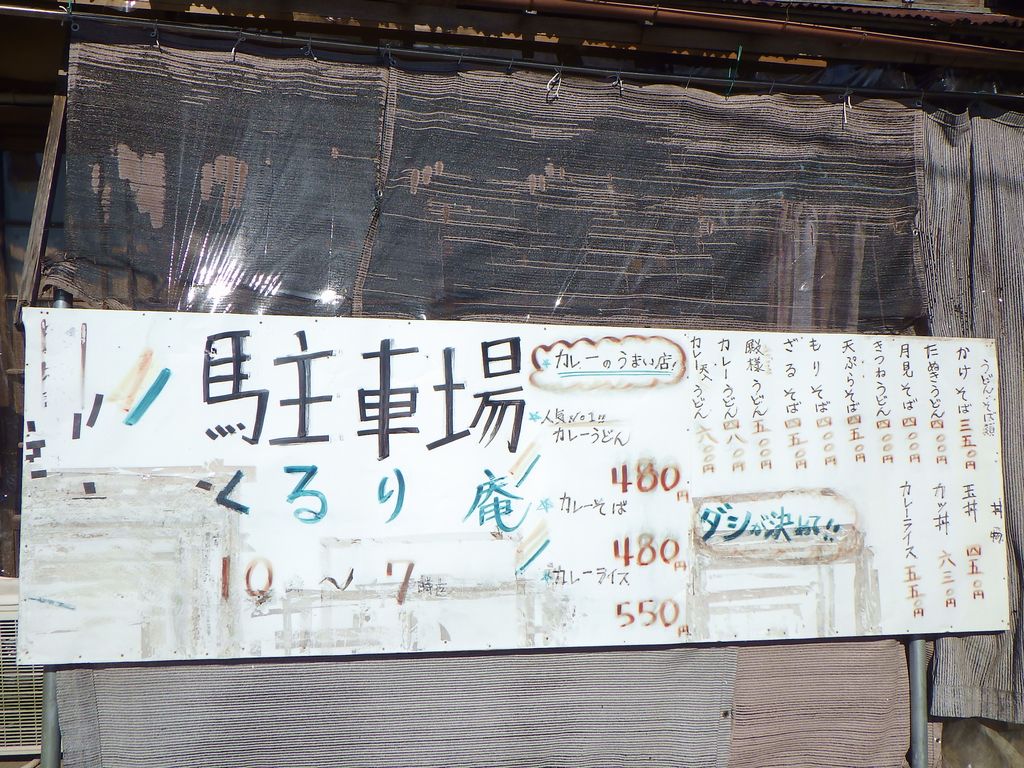 駐車場
くるり庵
10〜7時迄
カレーのうまい店!
人気No1!!
カレーうどん
480円
カレーそば
480円
カレーライス
550円
うどん・そば類
かけそば三五〇円
たぬきうどん四〇〇円
月見そば四〇〇円
きつねうどん四〇〇円
天ぷらそば四五〇円
もりそば四〇〇円
ざるそば四五〇円
殿様うどん五〇〇円
カレーうどん四八〇円
カレー天うどん六〇〇円
丼物
玉丼四五〇円
カツ丼六三〇円
カレーライス五五〇円
ダシが決めて!!